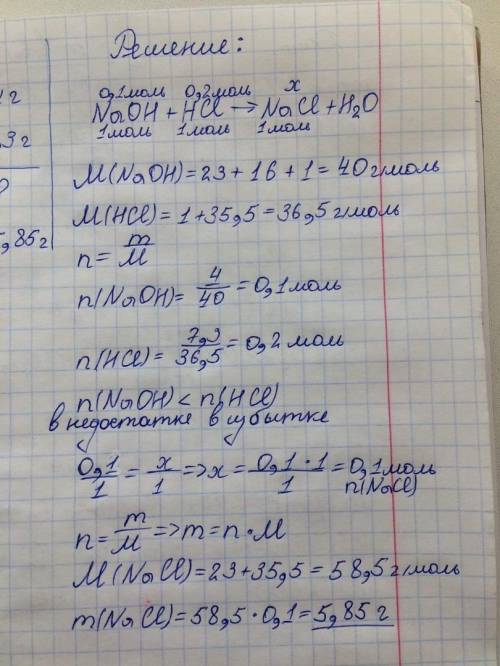 г
Решение:
0,1моль 0,2моль x
NaOH + HCl → NaCl + H₂O
1моль 1моль 1моль
,3г
M(NaOH) = 23 + 16 + 1 = 40г/моль
M(HCl) = 1 + 35,5 = 36,5г/моль
5,85г
n = m/M
n(NaOH) = 4/40 = 0,1моль
n(HCl) = 7,3/36,5 = 0,2моль
n(NaOH) < n(HCl)
в недостатке в избытке
0,1/1 = x/1 => x = 0,1·1/1 = 0,1моль
n(NaCl)
n = m/M => m = n·M
M(NaCl) = 23 + 35,5 = 58,5г/моль
m(NaCl) = 58,5·0,1 = 5,85г